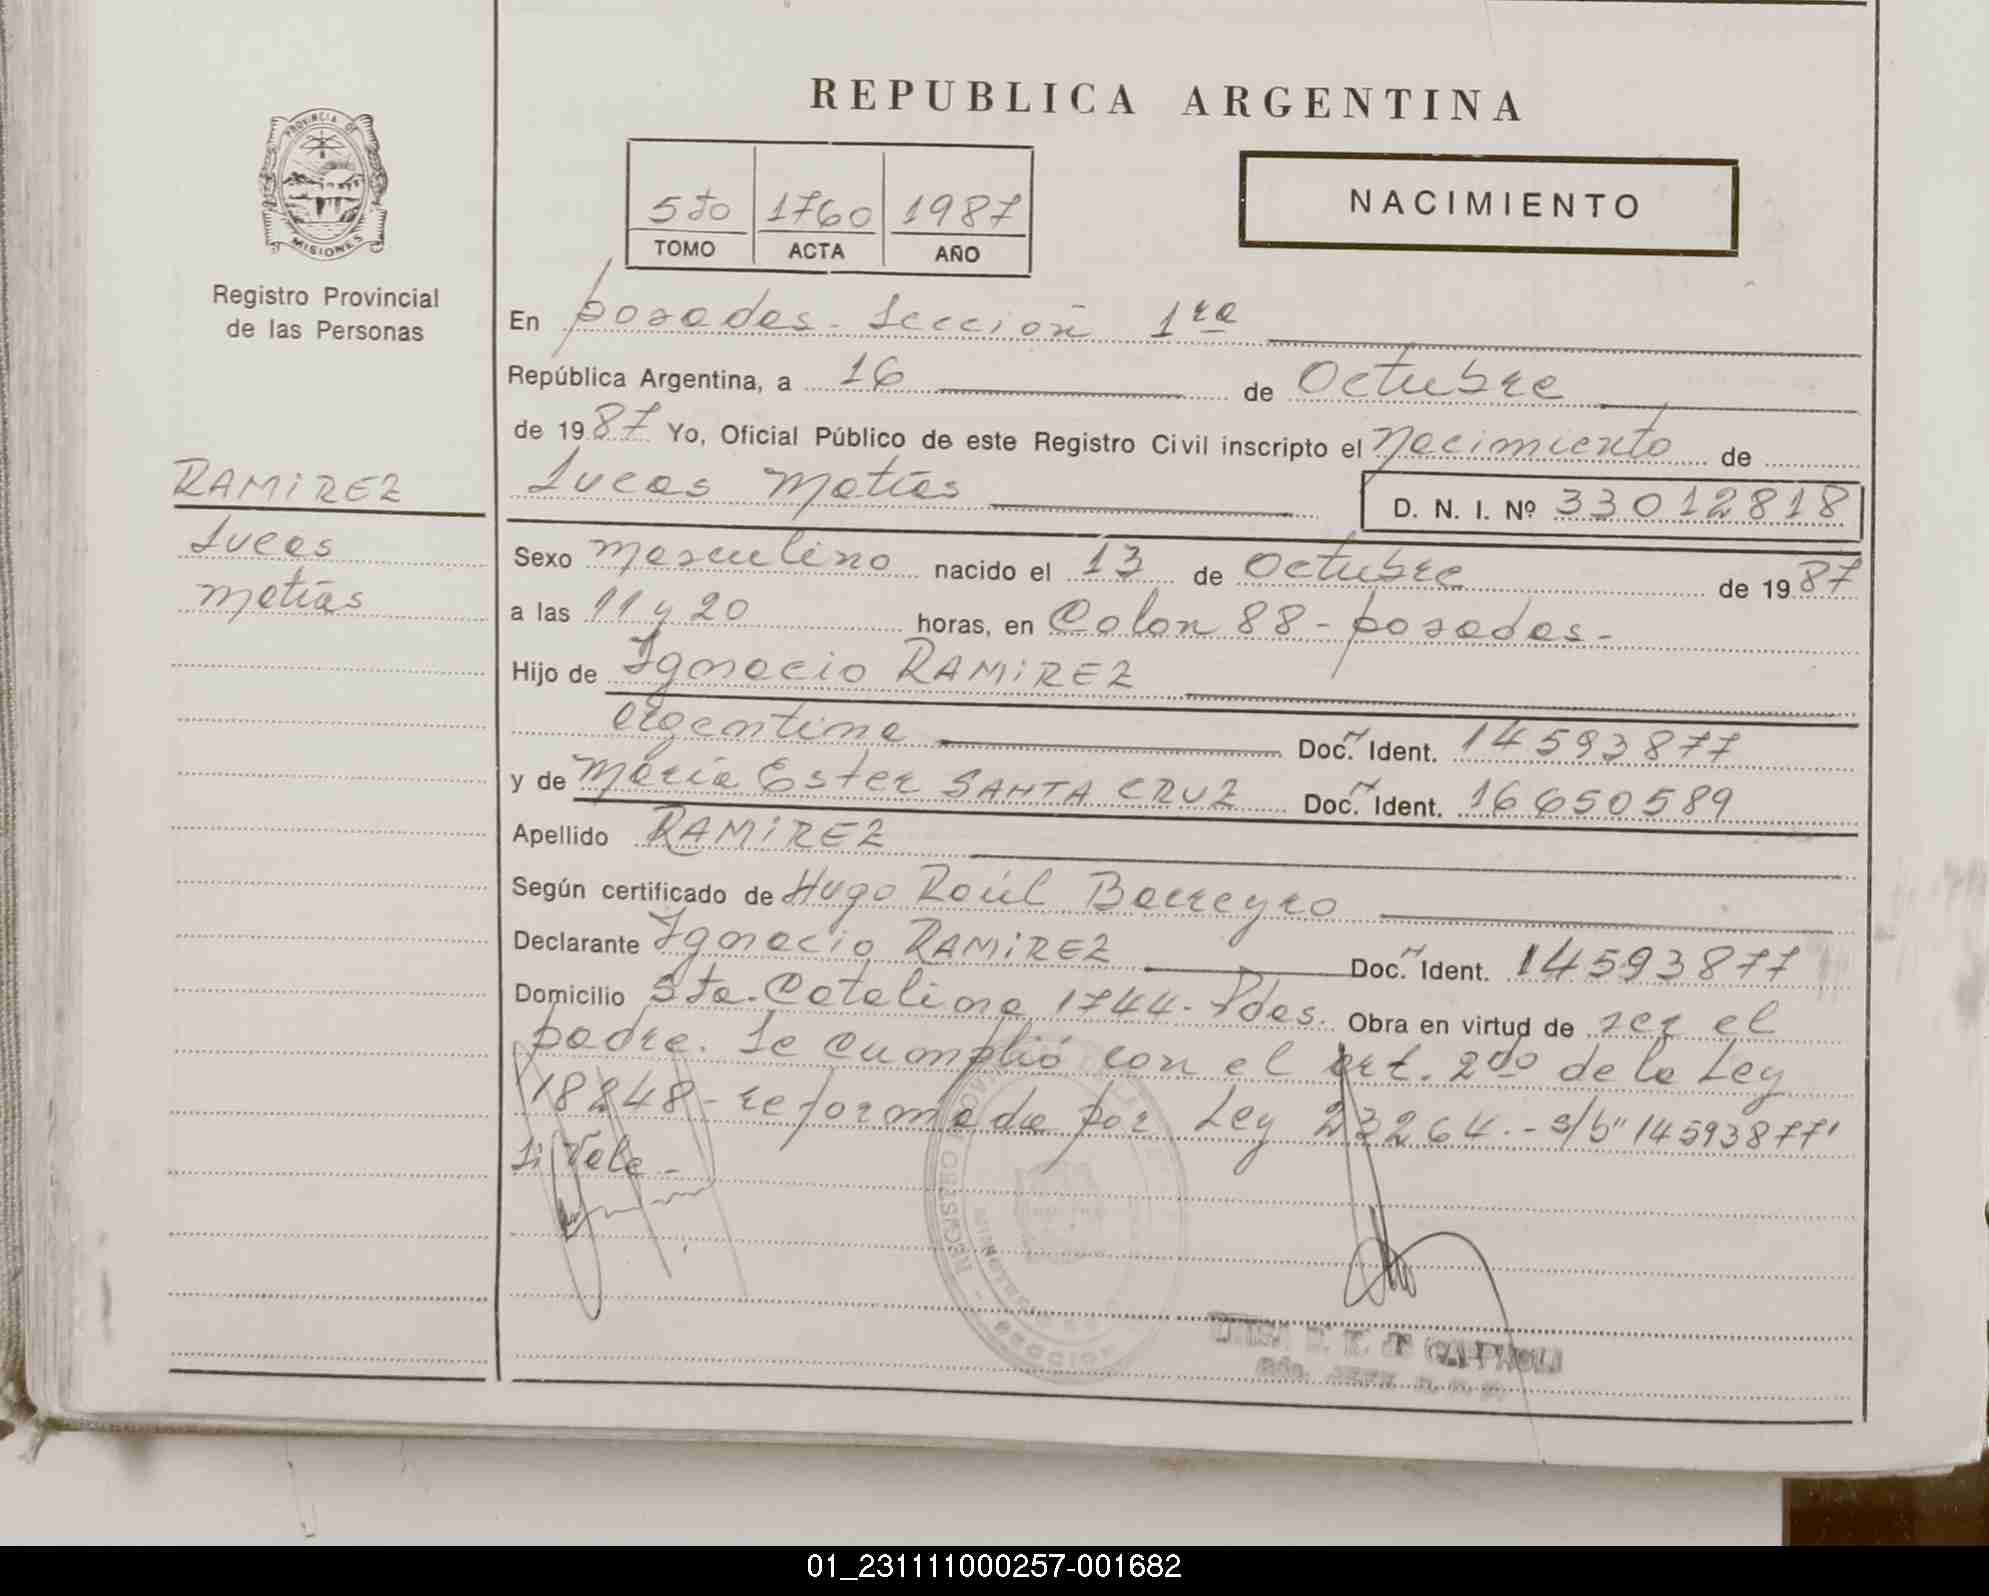 REPUBLICA ARGENTINA
PROVINCIA DE
MISIONES
Registro Provincial
de las Personas
5to 1760 1987
TOMO ACTA AÑO
NACIMIENTO
En Posadas - Sección 1ra
República Argentina, a 16 de Octubre
de 1987 Yo, Oficial Público de este Registro Civil inscripto el Nacimiento de
Lucas Matías D. N. I. Nº 33012818
RAMIREZ
Lucas
Matías
Sexo Masculino nacido el 13 de Octubre de 1987
a las 11 y 20 horas, en Colon 88 - Posadas -
Hijo de Ignacio RAMIREZ
argentina Doc. Ident. 14593877
y de María Ester SANTA CRUZ Doc. Ident. 16650589
Apellido RAMIREZ
Según certificado de Hugo Raúl Barreyro
Declarante Ignacio RAMIREZ Doc. Ident. 14593877
Domicilio Sta. Catalina 1744 - Pdas. Obra en virtud de ser el
padre. Se cumplió con el art. 2do de la Ley
18248 - reformada por Ley 23264. - s/b "14593877"
Si Vale -
01_231111000257-001682